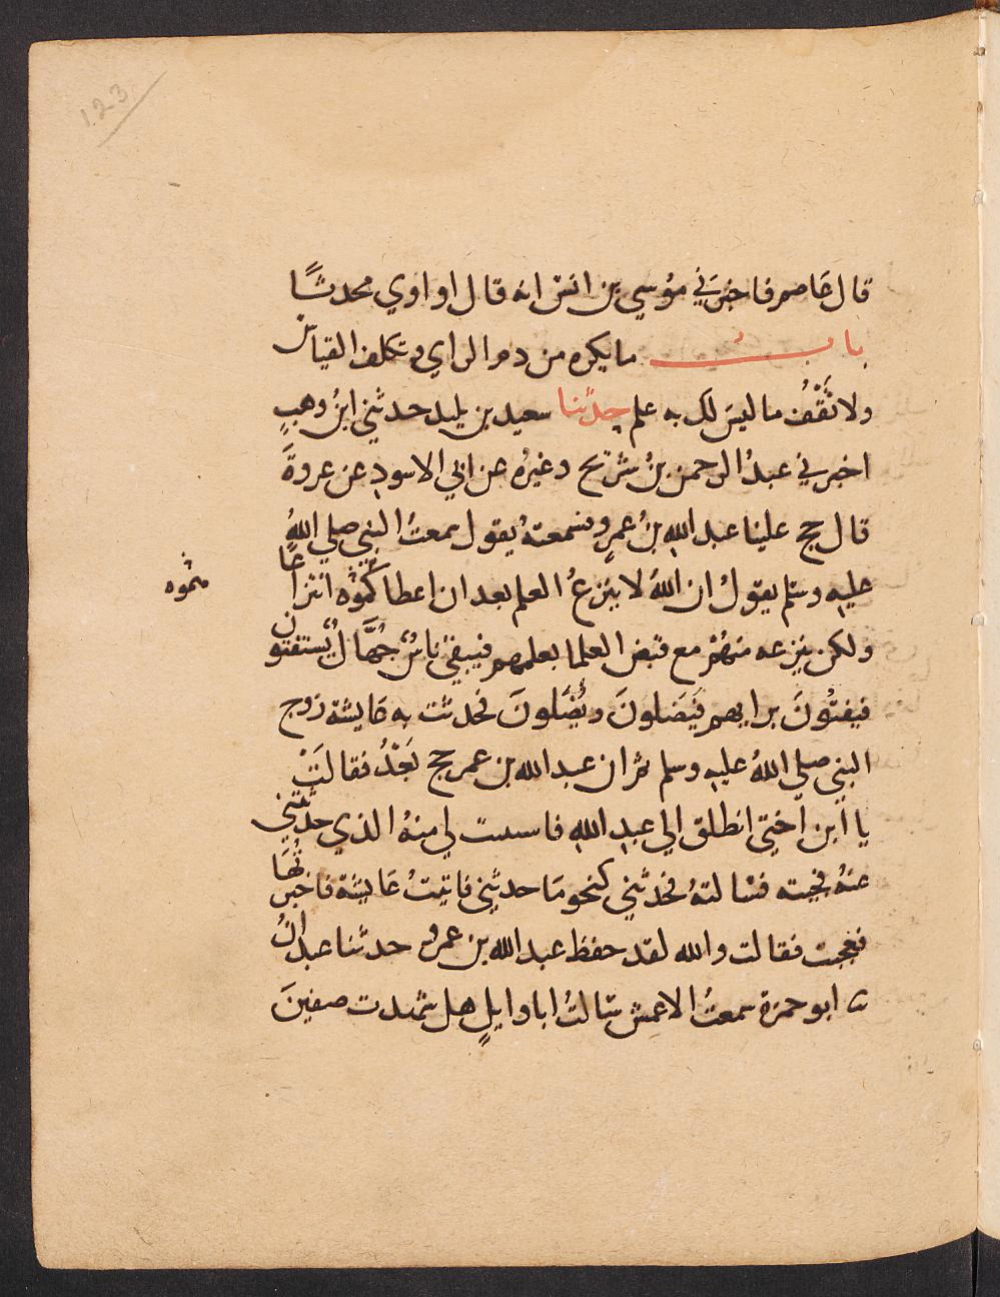 123
قال عاصم فاخبرني موسي بن انس انه قال او اوي محدثًا
باب ما يكره من ذم الراي وتكلف القياس
ولا تَقْفُ ما ليس لك به علم حدثنا سعيد بن تليد حدثني ابنُ وهبٍ
اخبرني عبدُ الرحمن بنُ شريح وغيرُه عن ابي الاسود عن عروةَ
قال حج علينا عبد الله بنُ عمرٍو فسمعتهُ يقول سمعتُ النبي صلي اللهُ
عليه وسلم يقولُ ان اللهَ لا ينزعُ العلم بعد ان اعطاكموه انتزاعًا
منموه
ولكن ينزعه منهُمْ مع قبض العلما بعلمهم فيبقي ناسٌ جُهَّالٌ يُستفتون
فيفتُونَ برايهم فيَضلونَ ويُضلونَ فحدثت به عايشة زوج
النبي صلي اللهُ عليه وسلم ثم ان عبد الله بن عمر حج بَعْدُ فقالَتْ
يا ابن اختي انطلق الي عبدِ اللهِ فاستثبت لي منهُ الذي حدثتني
عنهُ فجيته فسالتهُ فحدثني كنحو مَا حدثني فاتيتُ عَايشة فاخبرتُهَا
فعجبت فقالت والله لقد حفظ عبد الله بن عمرو حدثنا عبدانُ
ابو حمزة سمعتُ الاعمش سالتُ ابا وايلٍ هل شهدت صفينَ